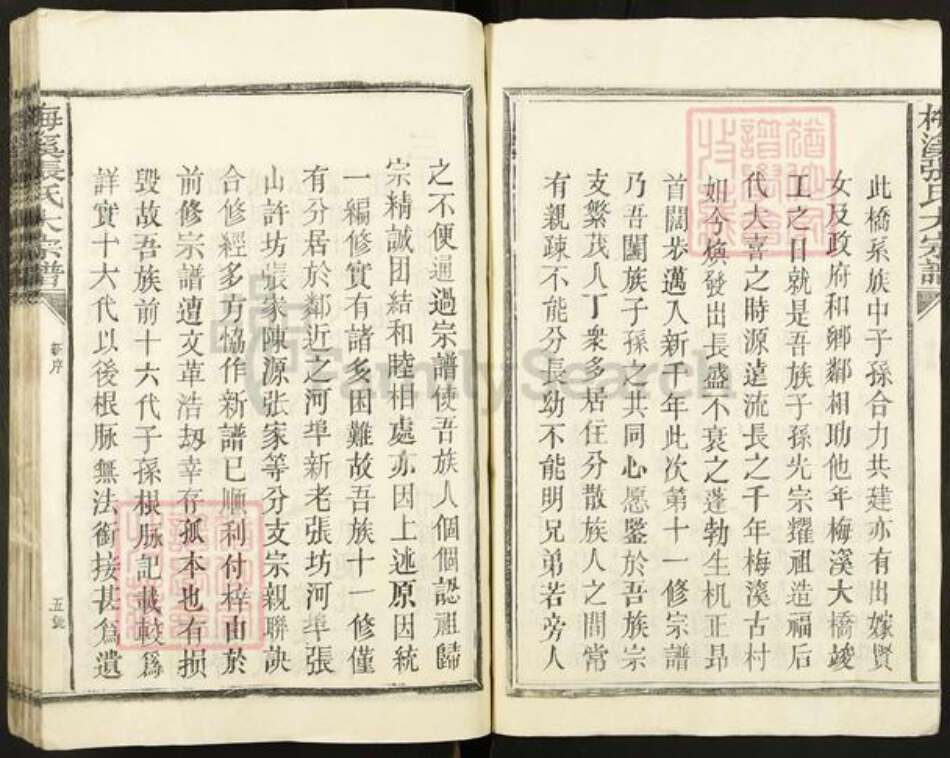 此橋系族中子孫合力共建亦有出嫁賢
女及政府和鄉鄰相助他年梅溪大橋竣
工之日就是吾族子孫光宗耀祖造福后
代大喜之時源遠流長之千年梅溪古村
如今煥發出長盛不衰之蓬勃生机正昂
首闊步邁入新千年此次第十一修宗譜
乃吾闔族子孫之共同心愿鑒於吾族宗
支繁茂人丁衆多居住分散族人之間常
有親疎不能分長幼不能明兄弟若旁人
梅溪張氏大宗譜
新序
五
之不便通過宗譜使吾族人個個認祖歸
宗精誠团结和睦相處亦因上述原因統
一編修實有諸多困難故吾族十一修僅
有分居於鄰近之河埠新老張坊河埠張
山許坊張家陳源張家等分支宗親聯訣
合修經多方恊作新譜已順利付梓由於
前修宗譜遭文革浩刼幸存孤本也有损
毀故吾族前十六代子孫根脉記載較爲
詳實十六代以後根脉無法銜接甚爲遺
梅溪張氏大宗譜
FamilySearch